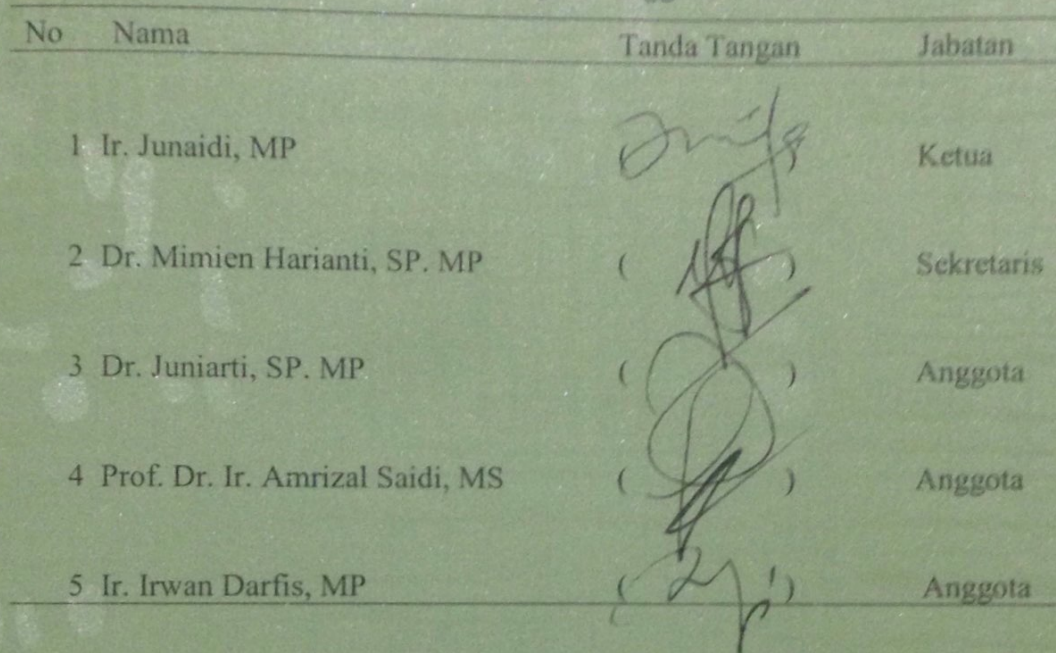 No Nama Tanda Tangan Jabatan
1 Ir. Junaidi, MP ( ) Ketua
2 Dr. Mimien Harianti, SP. MP ( ) Sekretaris
3 Dr. Juniarti, SP. MP ( ) Anggota
4 Prof. Dr. Ir. Amrizal Saidi, MS ( ) Anggota
5 Ir. Irwan Darfis, MP ( ) Anggota